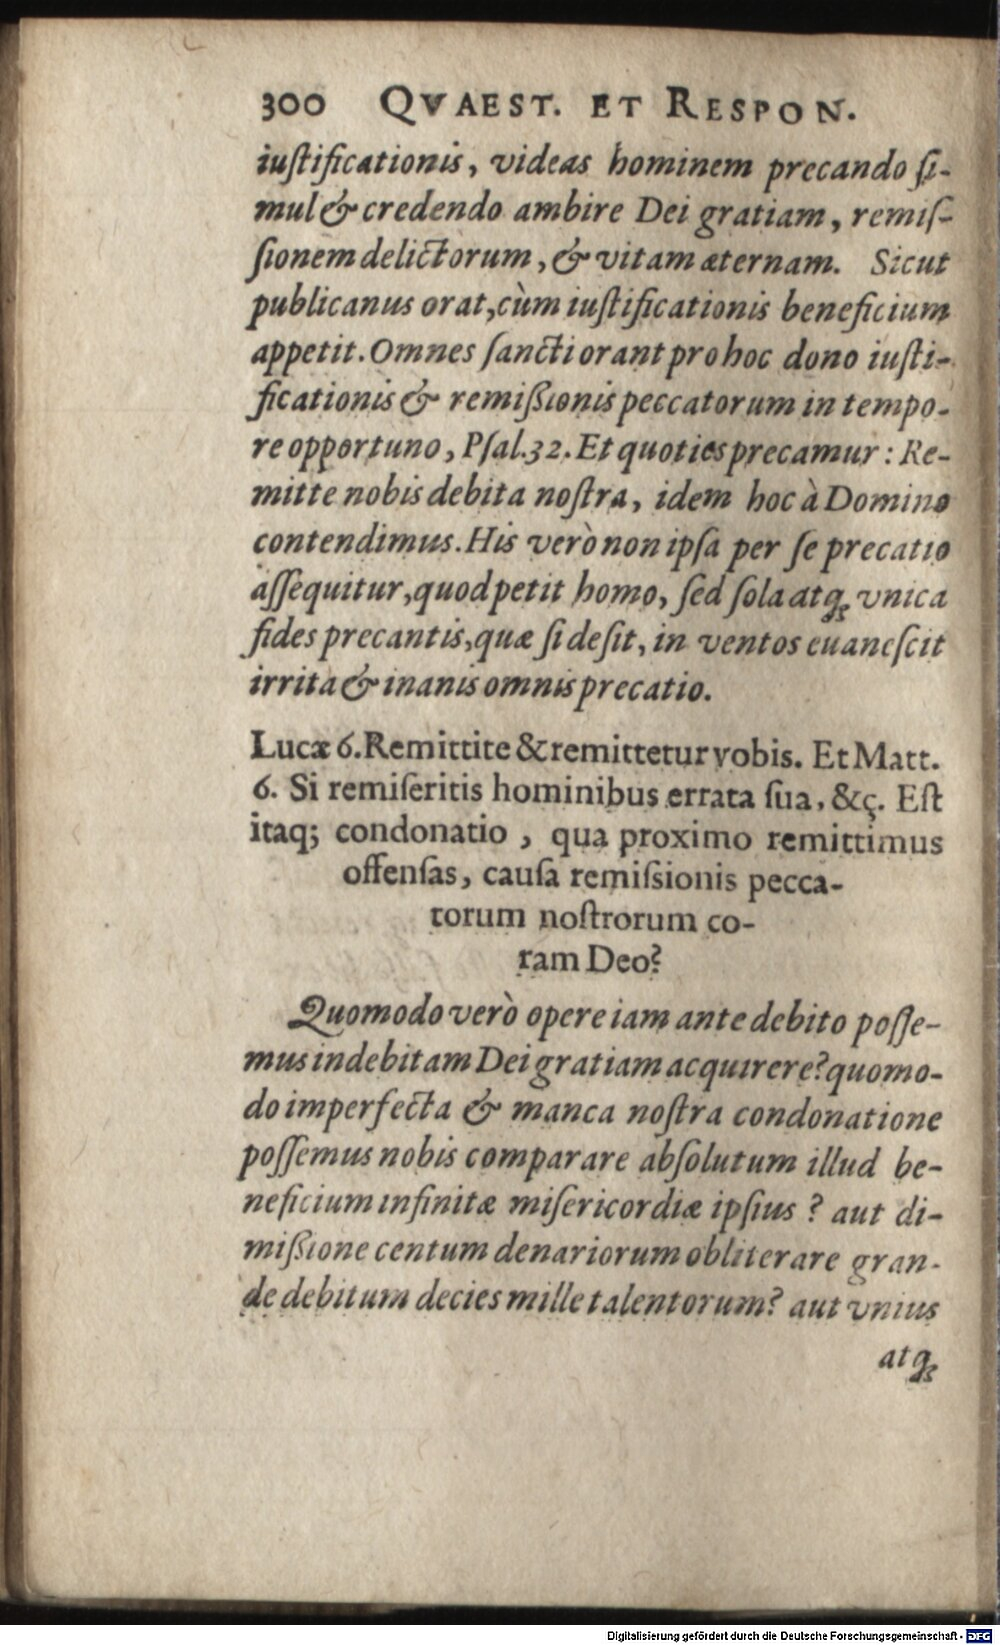 300 QVAEST. ET RESPON.
iuſtificationis, videas hominem precando ſi-
mul & credendo ambire Dei gratiam, remiſ-
ſionem delictorum, & vitam æternam. Sicut
publicanus orat, cùm iuſtificationis beneficium
appetit. Omnes ſancti orant pro hoc dono iuſti-
ficationis & remißionis peccatorum in tempo-
re opportuno, Pſal. 32. Et quoties precamur: Re-
mitte nobis debita noſtra, idem hoc à Domino
contendimus. His verò non ipſa per ſe precatio
aſſequitur, quod petit homo, ſed ſola atq; vnica
fides precantis, quæ ſi deſit, in ventos euaneſcit
irrita & inanis omnis precatio.
Lucæ 6. Remittite & remittetur vobis. Et Matt.
6. Si remiſeritis hominibus errata ſua, &ç. Eſt
itaq; condonatio, qua proximo remittimus
offenſas, cauſa remiſsionis pecca-
torum noſtrorum co-
ram Deo?
Quomodo verò opere iam ante debito poſſe-
mus indebitam Dei gratiam acquirere? quomo-
do imperfecta & manca noſtra condonatione
poſſemus nobis comparare abſolutum illud be-
neficium infinitæ miſericordiæ ipſius? aut di-
mißione centum denariorum obliterare gran-
de debitum decies mille talentorum? aut vnius
atq;
Digitalisierung gefördert durch die Deutsche Forschungsgemeinschaft - DFG